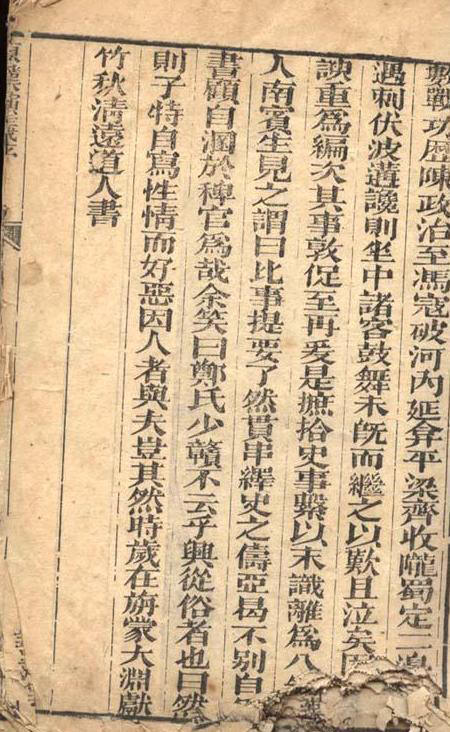 戰功歷陳政治至馮寇破河內延昇平梁齊收隴蜀定二
遇刺伏波遘讒則坐中諸客鼓舞未旣而繼之以歎且泣矣
談重爲編次其事敦促至再爰是摭拾史事繫以末識離爲八
人南賓生見之謂曰比事提要了然貫串繹史之儔亞曷不別自
書顧自溷於稗官爲哉余笑曰鄭氏少贛不云乎興從俗者也曰然
則子特自寫性情而好惡因人者與夫豈其然時歲在旃蒙大淵獻
竹秋清遠道人書